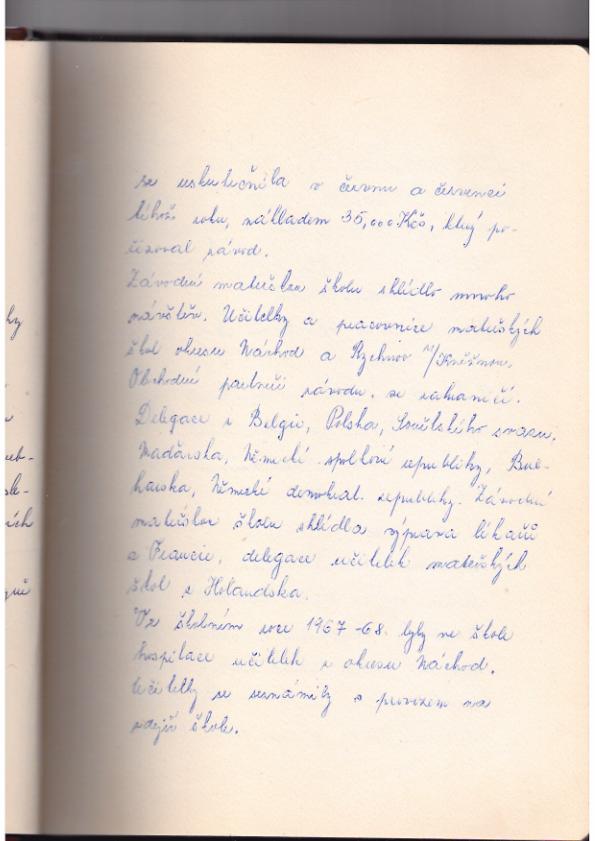 se uskutečnila v červnu a červenci
téhož roku, nákladem 35,000 Kčs, který po-
řizoval závod.
Závodní mateřskou školu shlédlo mnoho
návštěv. Učitelky a pracovnice mateřských
škol okresu Náchod a Rychnov n/Kněžnou.
Obchodní partneři závodu, ze zahraničí.
Delegace z Belgie, Polska, Sovětského svazu,
Maďarska, Německé spolkové republiky, Bul-
harska, Německé demokrat. republiky. Závodní
mateřskou školu shlédla výprava lékařů
z Francie, delegace učitelek mateřských
škol z Holandska.
Ve školním roce 1967-68. byly na škole
hospitace učitelek z okresu Náchod.
Učitelky se seznámily s provozem na
zdejší škole.
hy
ích